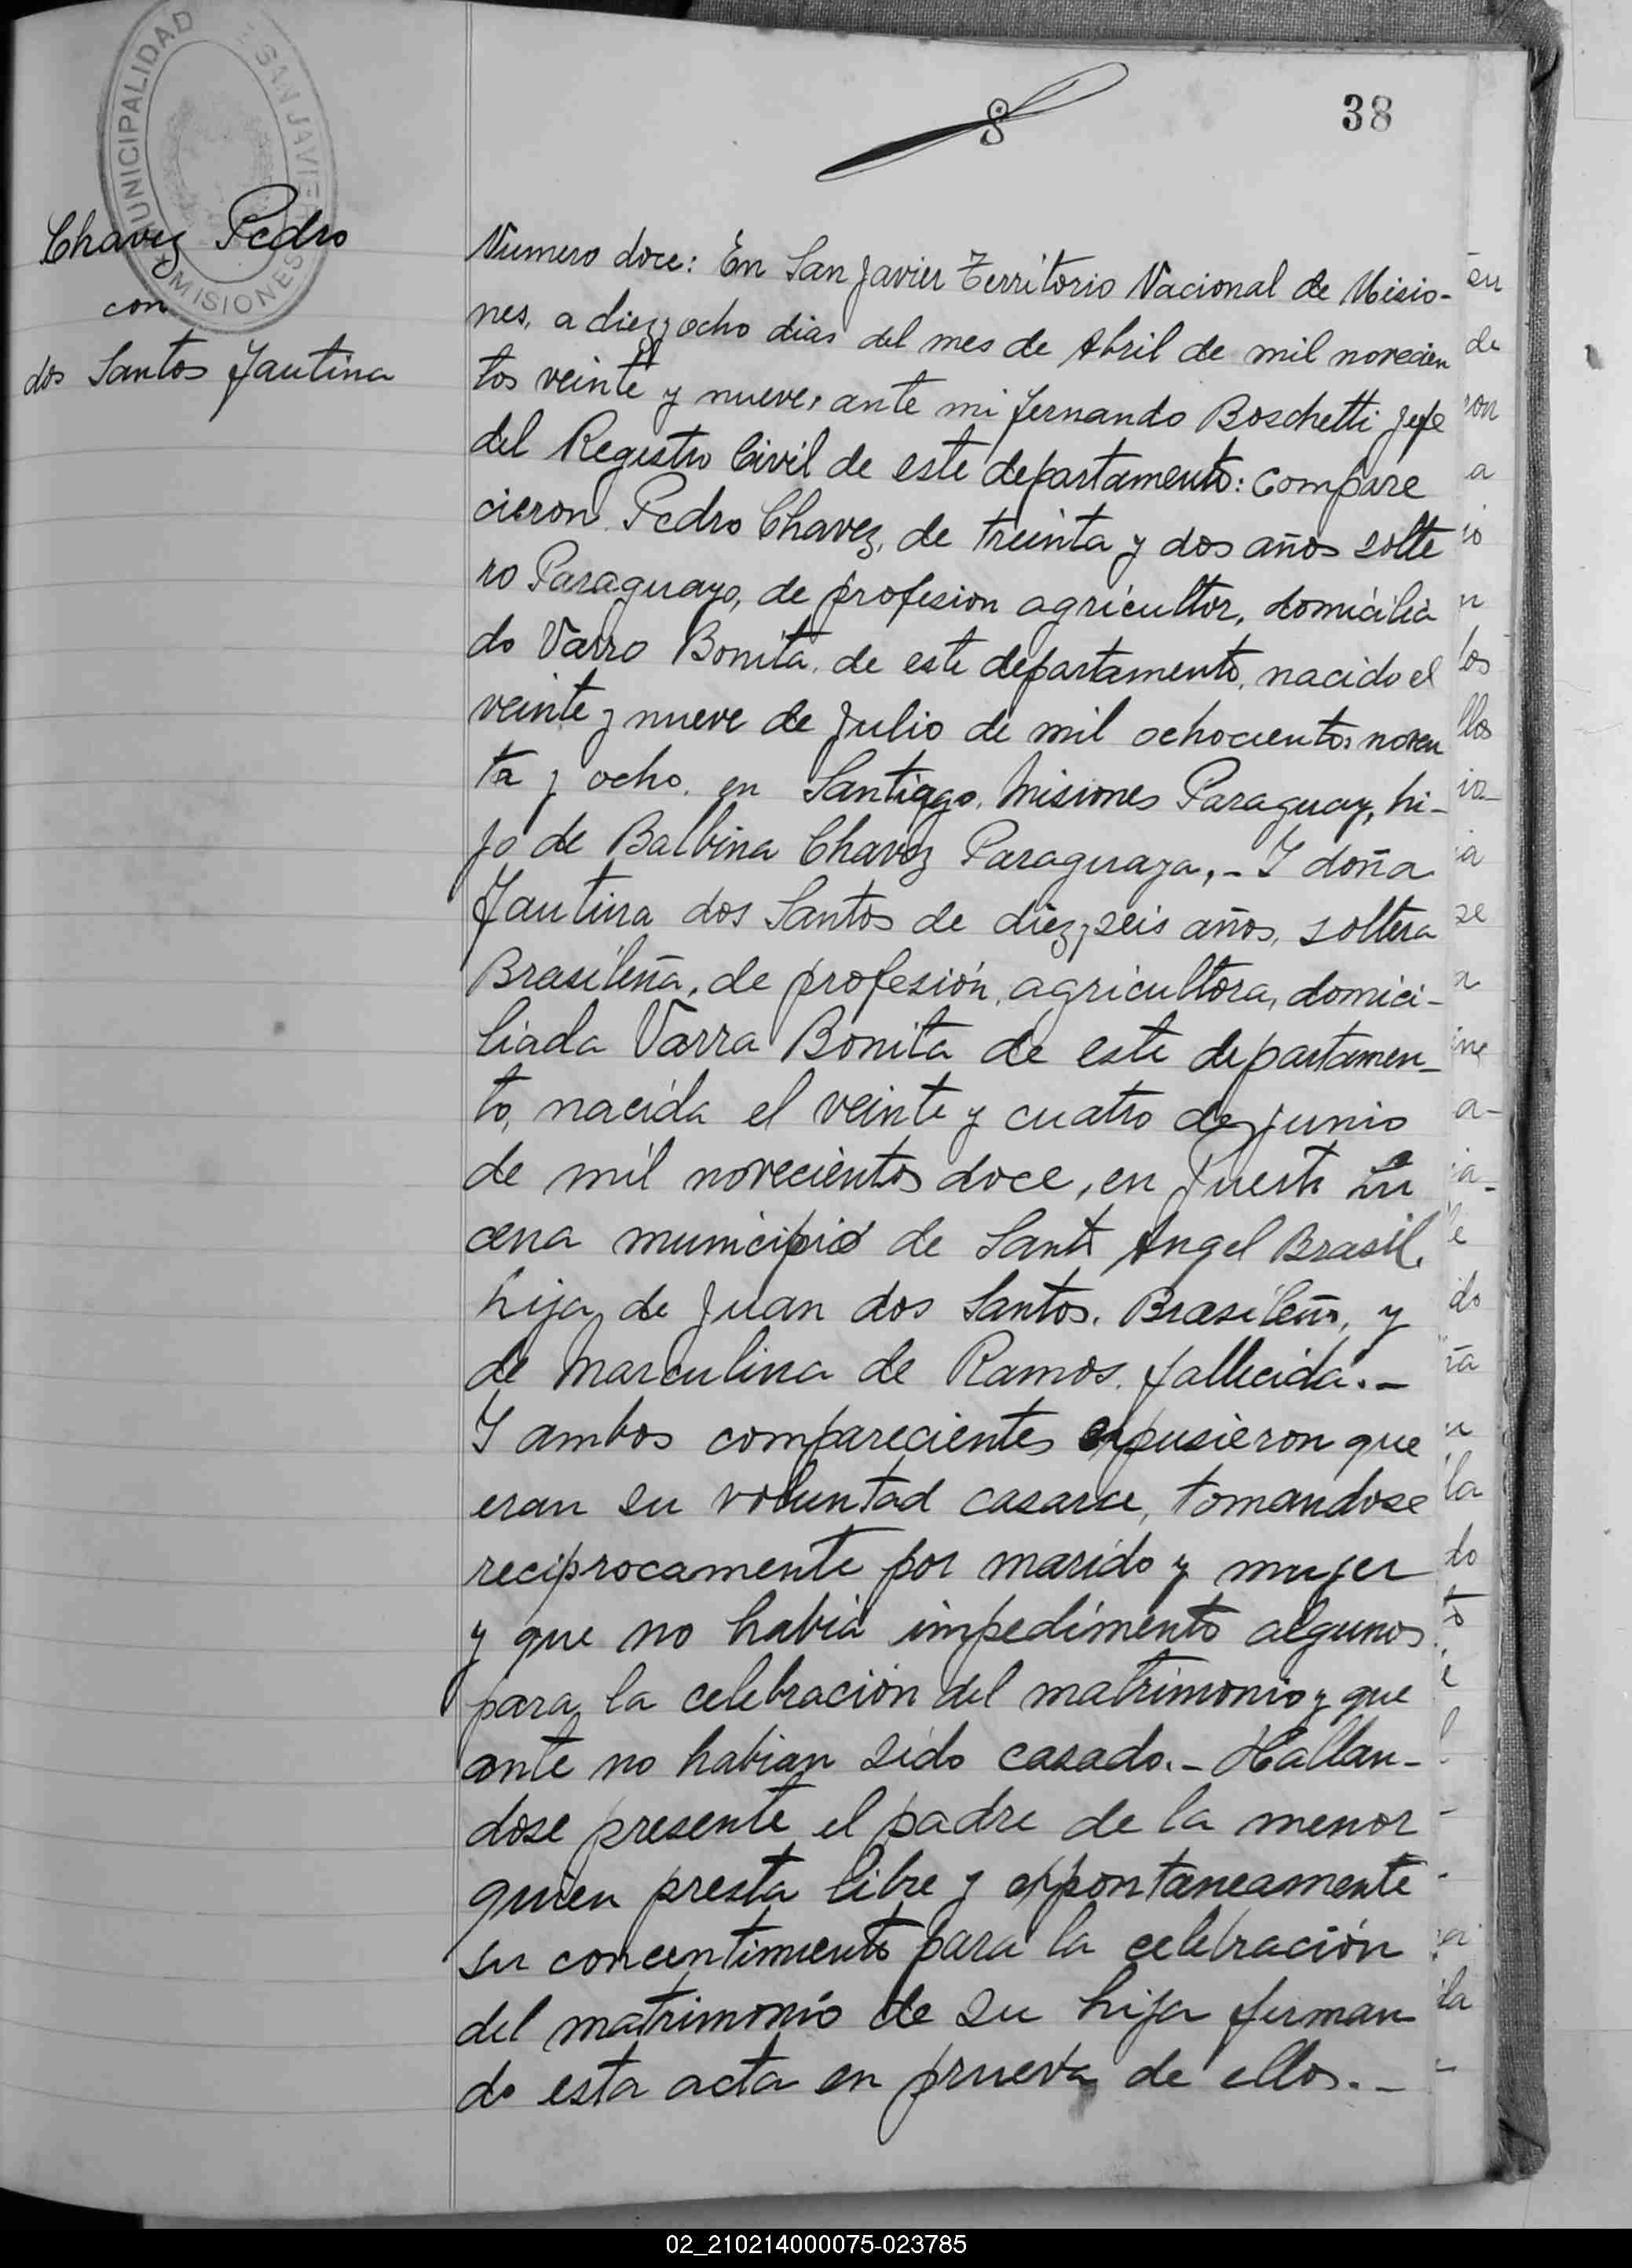 MUNICIPALIDAD
SAN JAVIER
MISIONES
38
Chavez Pedro
con
dos Santos Fautina
Numero doce: En San Javier Territorio Nacional de Misio-
nes, a diez y ocho dias del mes de Abril de mil novecien
tos veinte y nueve, ante mi Fernando Boschetti Jefe
del Registro Civil de este departamento: Compare
cieron Pedro Chavez, de treinta y dos años solte
ro Paraguayo, de profesion agricultor, domicilia
do Varro Bonita, de este departamento, nacido el
veinte y nueve de Julio de mil ochocientos noven
ta y ocho, en Santiago, Misiones Paraguay, hi-
jo de Balbina Chavez Paraguaya,- I doña
Fautina dos Santos de diez y seis años, soltera
Brasileña, de profesión, agricultora, domici-
liada Varra Bonita de este departamen-
to, nacida el veinte y cuatro de junio
de mil novecientos doce, en Puerto Lu
cena municipio de Santo Angel Brasil,
hija de Juan dos Santos, Brasileño, y
de Marculina de Ramos, fallecida.-
I ambos comparecientes expusieron que
eran su voluntad casarce, tomandose
reciprocamente por marido y mujer
y que no habia impedimento algunos
para la celebración del matrimonio y que
ante no habian sido casado.- Hallan-
dose presente el padre de la menor
quien presta libre y espontaneamente
su concentimiento para la celebración
del matrimonio de su hija firman
do esta acta en prueva de ellos.-
02_210214000075-023785